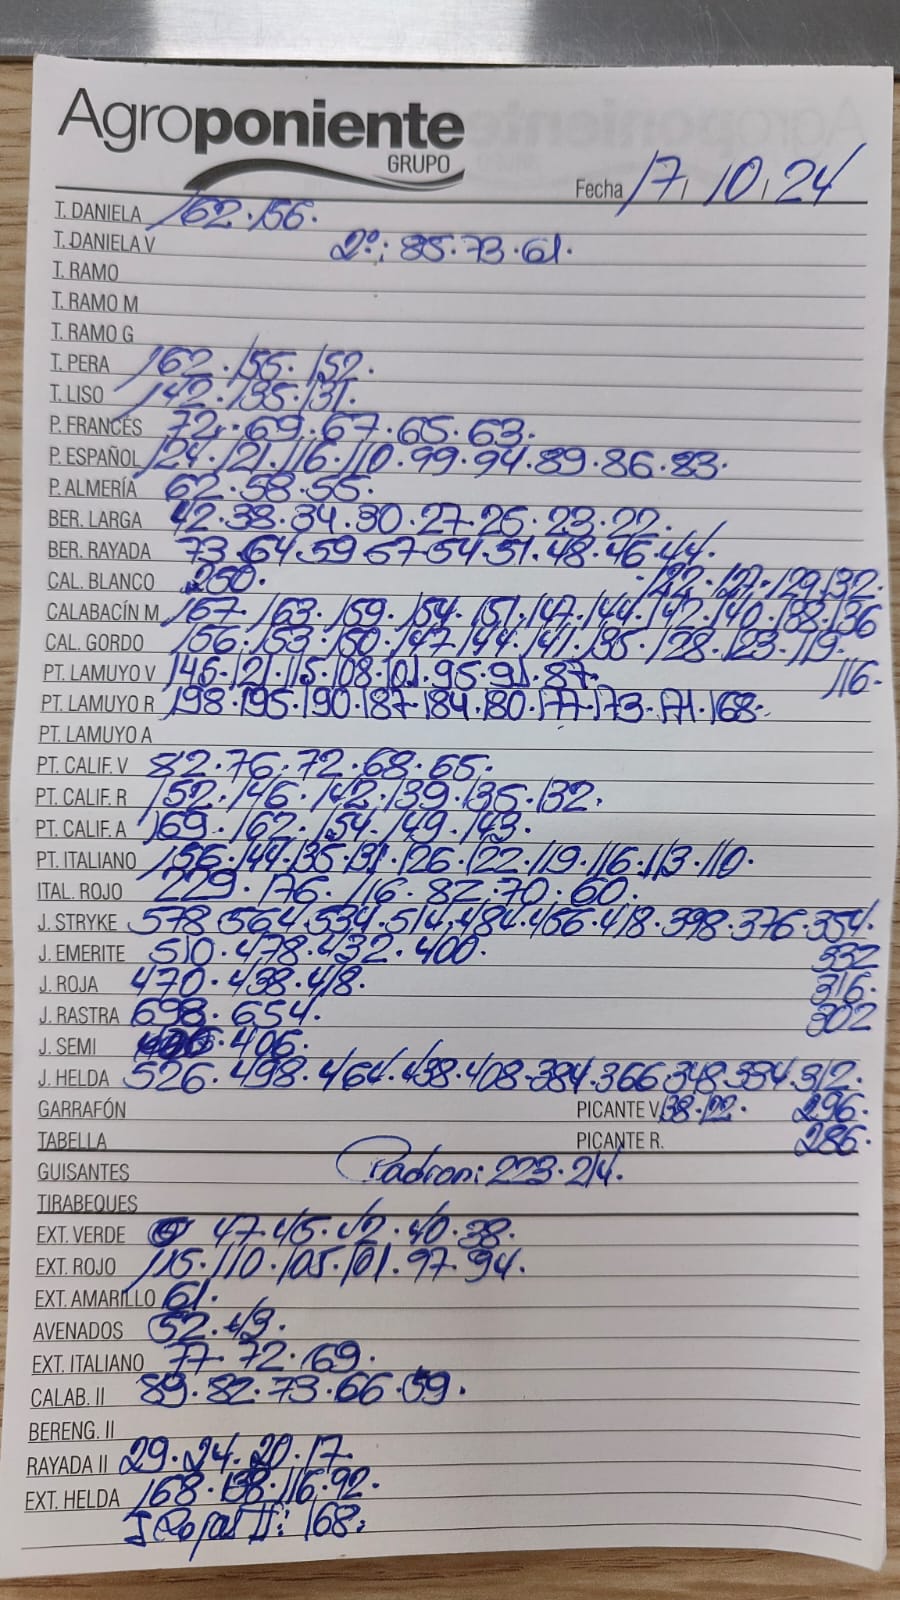 Agroponiente
GRUPO
Fecha 17, 10, 24
T. DANIELA 162.156.
T. DANIELA V 2º: 85.73.61.
T. RAMO
T. RAMO M
T. RAMO G
T. PERA 162.155.152.
T. LISO 142.135.131.
P. FRANCÉS 72.69.67.65.63.
P. ESPAÑOL 124.121.116.110.99.94.89.86.83.
P. ALMERÍA 62.58.55.
BER. LARGA 42.38.34.30.27.25.23.22.
BER. RAYADA 73.64.59.57.54.51.48.46.44.
CAL. BLANCO 250. .122.127.129.132.
CALABACÍN M 167.163.159.154.151.147.144.142.140.138.136
CAL. GORDO 156.153.150.147.144.141.135.128.123.119.
116.
PT. LAMUYO V 145.121.115.108.101.95.91.87.
PT. LAMUYO R 198.195.190.187.184.180.177.173.171.168.
PT. LAMUYO A
PT. CALIF. V 82.76.72.68.65.
PT. CALIF. R 152.146.142.139.135.132.
PT. CALIF. A 169.162.154.149.143.
PT. ITALIANO 156.144.135.131.126.122.119.116.113.110.
ITAL. ROJO 229.176.116.82.70.60.
J. STRYKE 578.564.534.514.484.456.418.398.376.354.
J. EMERITE 510.478.432.400. 332
J. ROJA 470.438.418. 316.
J. RASTRA 698.654. 302
J. SEMI 406.
J. HELDA 526.498.464.438.408.384.366.348.334.312.
GARRAFÓN PICANTE V. 138.122. 296.
TABELLA PICANTE R. 286.
GUISANTES Padron: 223.214.
TIRABEQUES
EXT. VERDE 47.45.42.40.38.
EXT. ROJO 115.110.105.101.97.94.
EXT. AMARILLO 61.
AVENADOS 52.43.
EXT. ITALIANO 77.72.69.
CALAB. II 89.82.73.66.59.
BERENG. II
RAYADA II 29.24.20.17.
EXT. HELDA 168.138.116.92.
J Rojas II: 168.